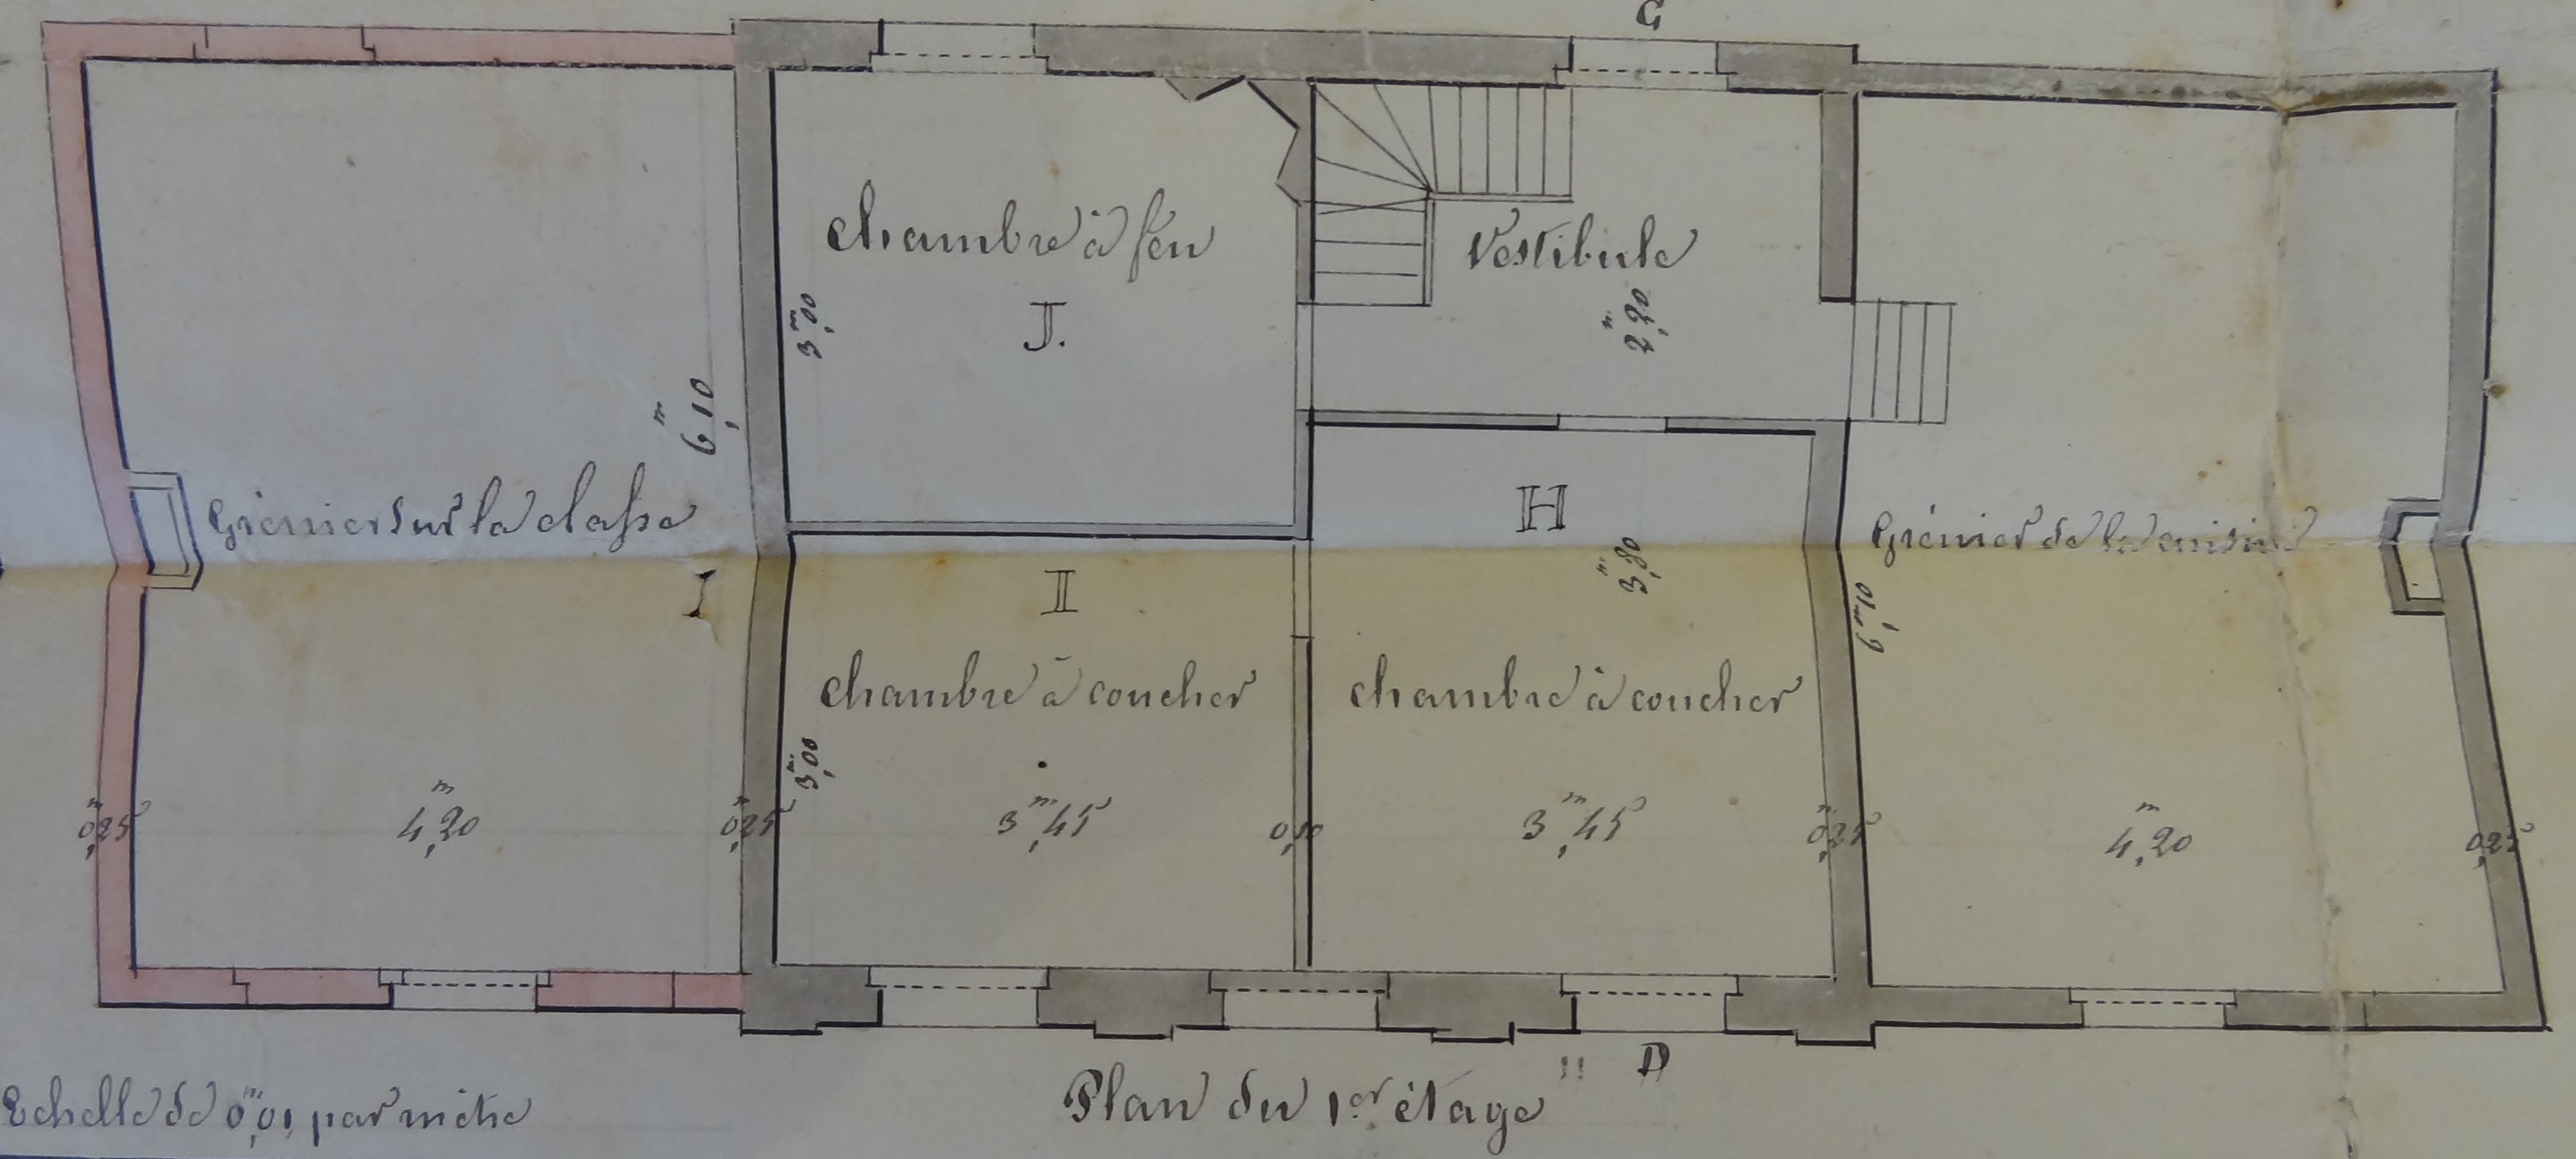 G
chambre à feu
Vestibule
J.
3,00 m
2,20 m
6,10 m
H
Grénier sur la classe
Grénier de la cuisine
3,80 m
6,10 m
I
I
chambre à coucher
chambre à coucher
3,00 m
0,25 m
4,20 m
0,25 m
3,45 m
0,10
3,45 m
0,25 m
4,20 m
0,25
D
Echelle de 0,01 m par mètre
Plan du 1er étage